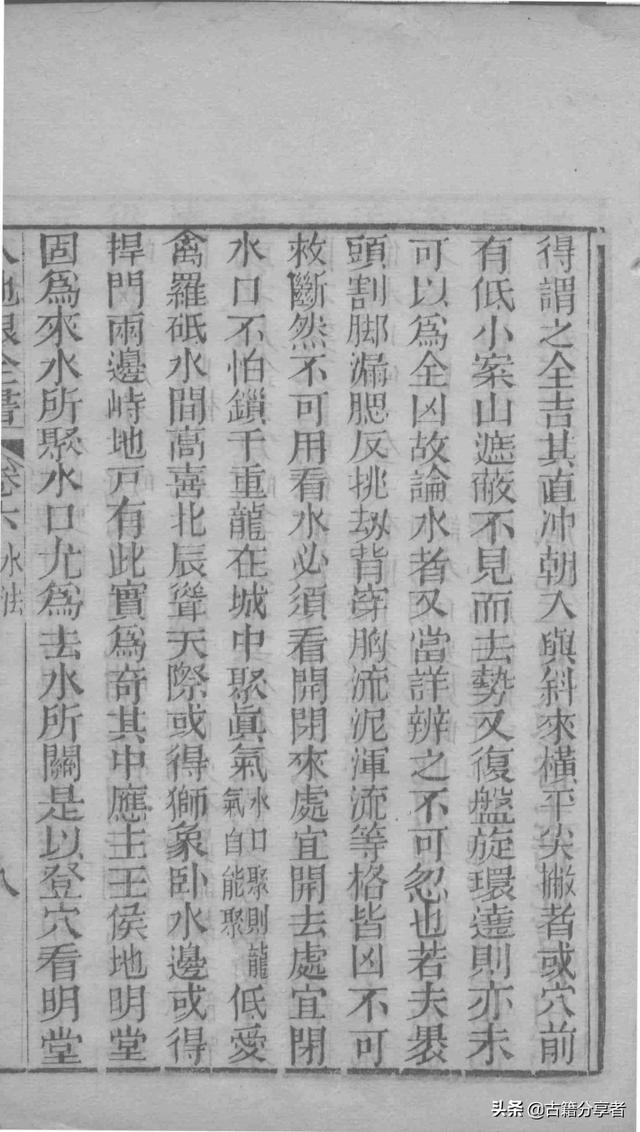 得謂之全吉其直冲朝入與斜來橫平尖撇者或穴前
有低小案山遮蔽不見而去勢又復盤旋環遶則亦未
可以爲全凶故論水者又當詳辨之不可忽也若夫褁
頭割脚漏腮反挑刼背穿胸流泥渾流等格皆凶不可
救斷然不可用看水必須看開閉來處宜開去處宜閉
水口不怕鎖千重龍在城中聚眞氣水口聚則龍氣自能聚低愛
禽羅砥水間高喜北辰聳天際或得獅象卧水邊或得
捍門兩邊峙地戸有此實爲奇其中應主王侯地明堂
固爲來水所聚水口尤爲去水所關是以登穴看明堂
人地眼全書 卷六 水法 八
头条 @古籍分享者